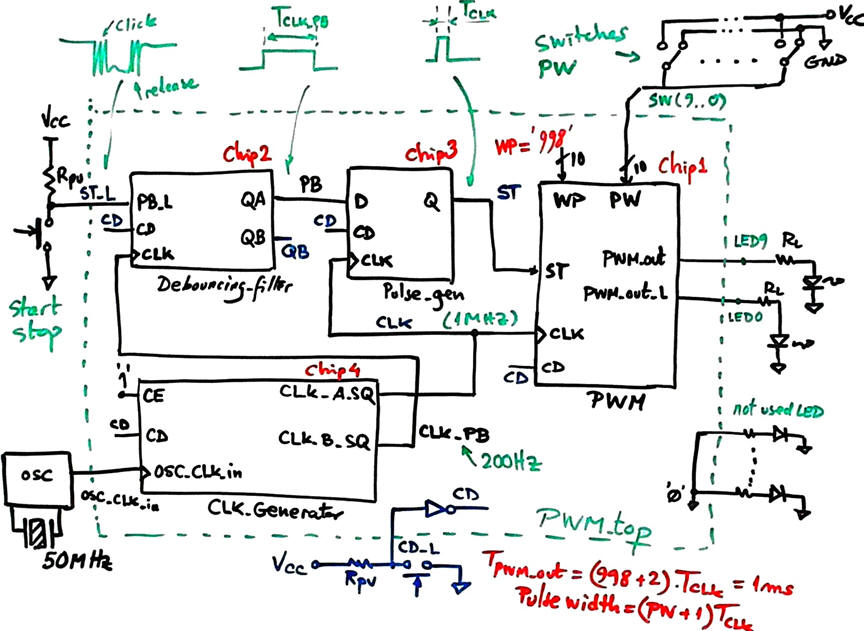 Click
release
TCLK_PB
TCLK
Switches
PW
VCC
GND
SW(9..0)
VCC
RPU
ST_L
Start
stop
Chip2
PB_L
CD
CD
CLK
QA
QB
QB
Debouncing-filter
PB
Chip3
D
CD
CD
CLK
Q
Pulse_gen
ST
WP='998'
10
10
Chip1
WP
PW
ST
PWM_out
PWM_out_L
CLK
CD
CD
PWM
LED9
RL
LED0
RL
CLK
(1MHz)
'1'
Chip4
CE
CD
CD
OSC_CLK_in
CLK_A_SQ
CLK_B_SQ
CLK_Generator
CLK_PB
200Hz
OSC
OSC_CLK_in
50MHz
not used LED
'0'
PWM_top
VCC
RPU
CD_L
CD
TPWM_out = (998+2).TCLK = 1ms
Pulse width = (PW+1)TCLK